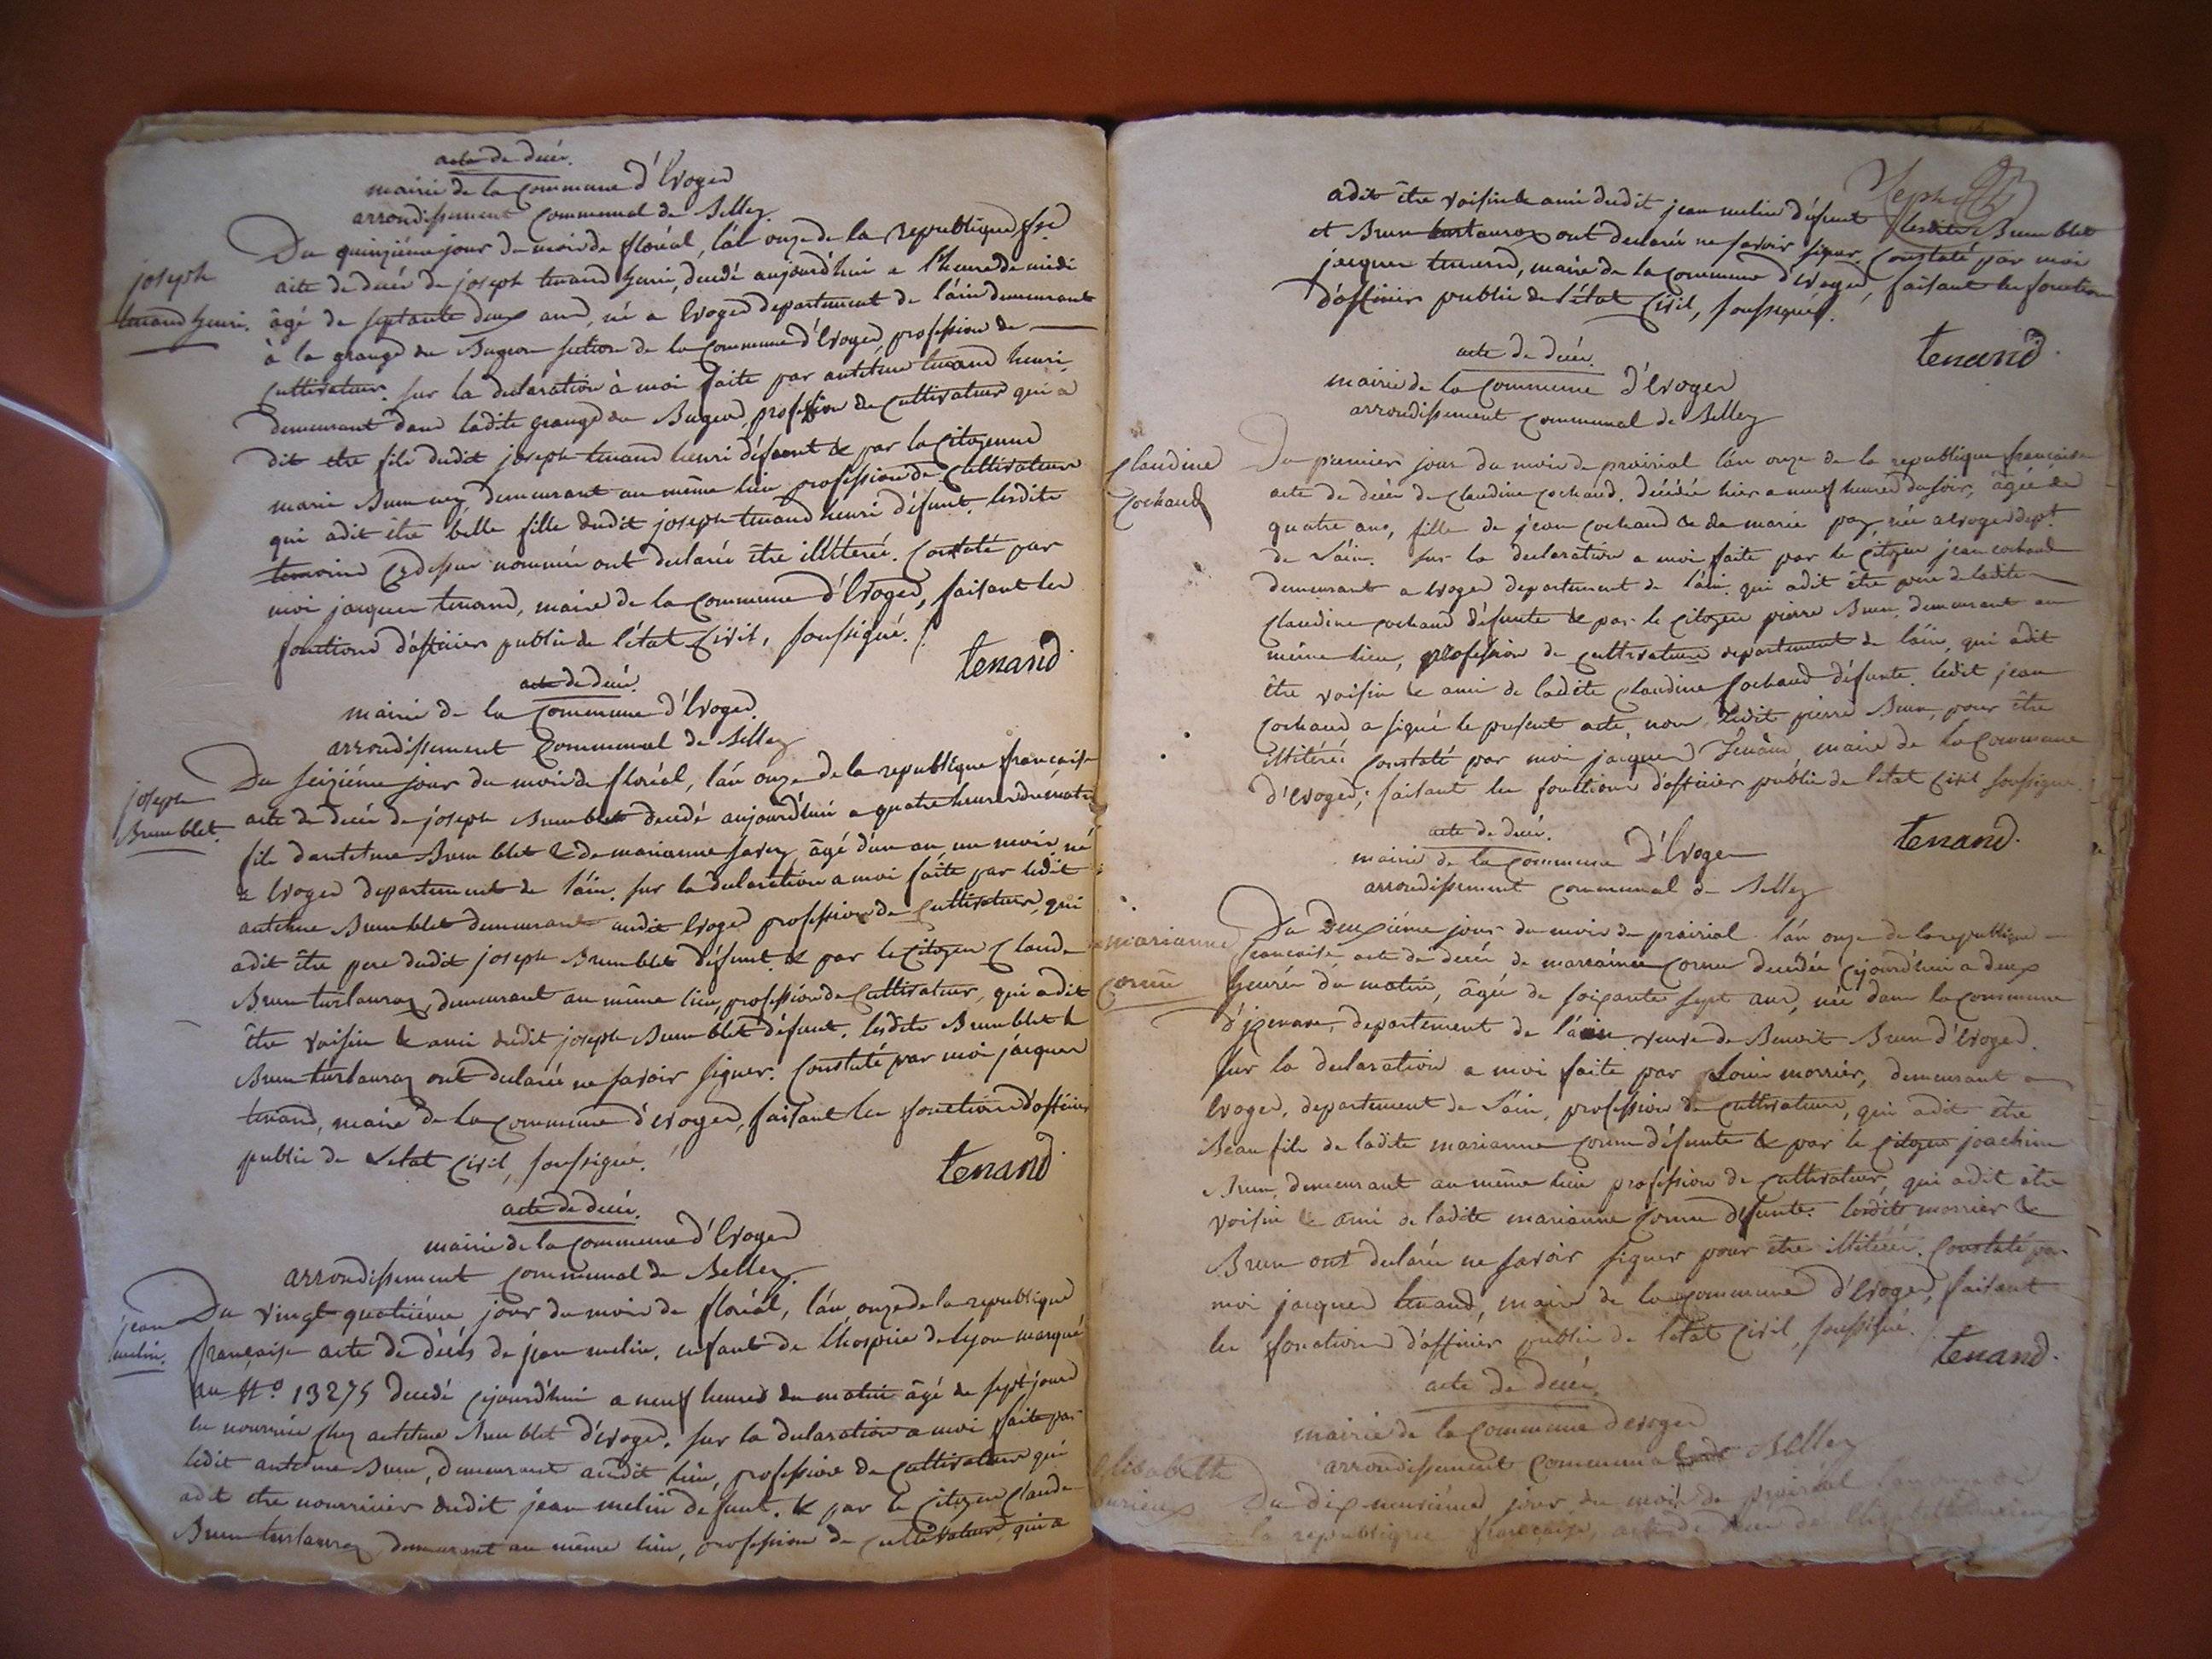 acte de décès.
mairie de la Commune d'Evoges
arrondissement Communal de Belley.
joseph
tenand henri.
Du quinzième jour du mois de floréal, l'an onze de la republique fse
acte de décès de joseph tenand henri, decedé aujourd'hui a l'heure de midi
âgé de septante deux ans, né a Evoges departement de l'ain demeurant
à la grange du section de la Commune d'Evoges, profession de
Cultivateur. sur la declaration à moi faite par antelme tenand henri
demeurant dans ladite grange du profession de Cultivateur qui a
dit etre fils dudit joseph tenand henri défunt & par la Citoyenne
marie Brun demeurant au même lieu profession de Cultivateur
qui adit être belle fille dudit joseph tenand henri défunt. lesdits
temoins Cydessus nommés ont declaré être illiterés. Constaté par
moi jacques tenand, maire de la Commune d'Evoges, faisant les
fonctions d'officier public de l'état Civil, soussigné.
tenand
acte de décès.
mairie de la Commune d'Evoges
arrondissement Communal de Belley
joseph
Brun blet.
Du seizième jour du mois de floréal, l'an onze de la republique française
acte de décès de joseph Brun blet decedé aujourd'hui a quatre heures du matin
fils d'antelme Brun blet & de marianne savey âgé d'un an un mois, né
a Evoges departement de l'ain. sur la declaration a moi faite par ledit
antelme Brun blet demeurant audit Evoges profession de Cultivateur, qui
adit être pere dudit joseph Brun blet défunt. & par le Citoyen Claude
Brun turlauraz, demeurant au même lieu, profession de Cultivateur, qui adit
être voisin & ami dudit joseph Brun blet défunt. lesdits Brun blet &
Brun turlauraz ont declaré ne savoir signer. Constaté par moi jacques
tenand, maire de la Commune d'evoges, faisant les fonctions d'officier
public de Letat Civil, soussigné.
tenand
acte de décès.
mairie de la Commune d'Evoges
arrondissement Communal de Belley.
jean
melin.
Du vingt quatrième jour du mois de floréal, l'an onze de la republique
française acte de décès de jean melin, enfant de l'hospice de lyon marqué
au No 13275 decedé cejourd'hui a neuf heures du matin âgé de sept jours
en nourrice chez antelme Brun blet d'évoges. sur la declaration a moi faite par
ledit antelme Brun, demeurant audit lieu, profession de Cultivateur qui
adit etre nourricier dudit jean melin défunt. & par le Citoyen Claude
Brun turlauraz demeurant au même lieu, profession de Cultivateur, qui a
adit être voisin & ami dudit jean melin défunt lesdits Brun blet
et Brun turlauraz ont declaré ne savoir signer. Constaté par moi
jacques tenand, maire de la Commune d'Evoges, faisant les fonctions
d'officier public de l'état Civil, soussigné.
tenand
acte de décès.
mairie de la Commune d'Evoges
arrondissement Communal de Belley
Claudine
Cochaud
Du premier jour du mois de prairial l'an onze de la republique française
acte de décès de Claudine Cochaud. décédée hier a neuf heures du soir, âgée de
quatre ans, fille de jean Cochaud & de marie née a evoges dept.
de L'ain. sur la declaration a moi faite par le Citoyen jean cochaud
demeurant a Evoges departement de l'ain. qui adit être pere de ladite
Claudine Cochaud défunte & par le Citoyen pierre Brun, demeurant au
même lieu, profession de cultivateur departement de l'ain, qui adit
être voisin & ami de ladite Claudine Cochaud défunte. ledit jean
Cochaud a signé le present acte, non Ledit pierre Brun, pour être
illitéré Constaté par moi jacques Tenand maire de la Commune
d'evoges, faisant les fonctions d'officier public de l'etat Civil soussigné.
tenand.
acte de décès.
mairie de la Commune d'Evoges
arrondissement communal de Belley
marianne
Cornu
Du Deuxième jour du mois de prairial l'an onze de la republique
française acte de décès de marianne Cornu decédée Cejourd'hui a deux
heures du matin, âgée de soixante sept ans, née dans la Commune
departement de l'ain veuve de Benoit Brun d'Evoges.
Sur la declaration a moi faite par Louis morrier, demeurant a
Evoges, departement de L'ain, profession de Cultivateur, qui adit être
Beau fils de ladite marianne Cornu défunte & par le Citoyen joachim
Brun, demeurant au même lieu profession de Cultivateur, qui adit être
voisin & ami de ladite marianne Cornu défunte. lesdits morrier &
Brun ont declaré ne savoir signer pour être illitérés. Constaté par
moi jacques tenand, maire de la Commune d'Evoges, faisant
les fonctions d'officier public de l'etat Civil, soussigné.
tenand.
acte de décès
mairie de la Commune d'evoges
arrondissement Communal de Belley
Elisabeth
Du dix neuvième jour du mois de prairial l'an onze de
la republique française, acte de décès de Elisabeth